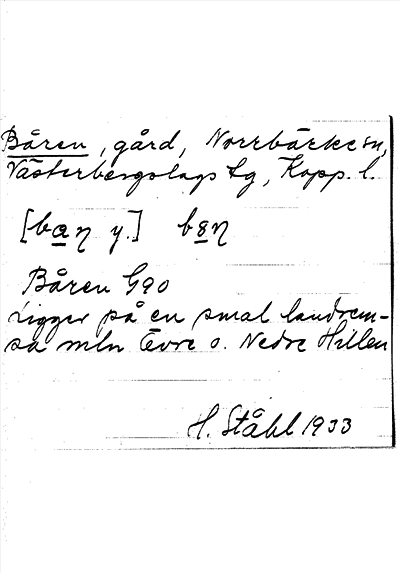 Båren, gård, Norrbärke sn,
Västerbergslags tg, Kopp. l.
[baŋ y.] bꞩŋ
Båren G90
Ligger på en smal landrem-
sa mln Övre o. Nedre Hillen
H. Ståhl 1933